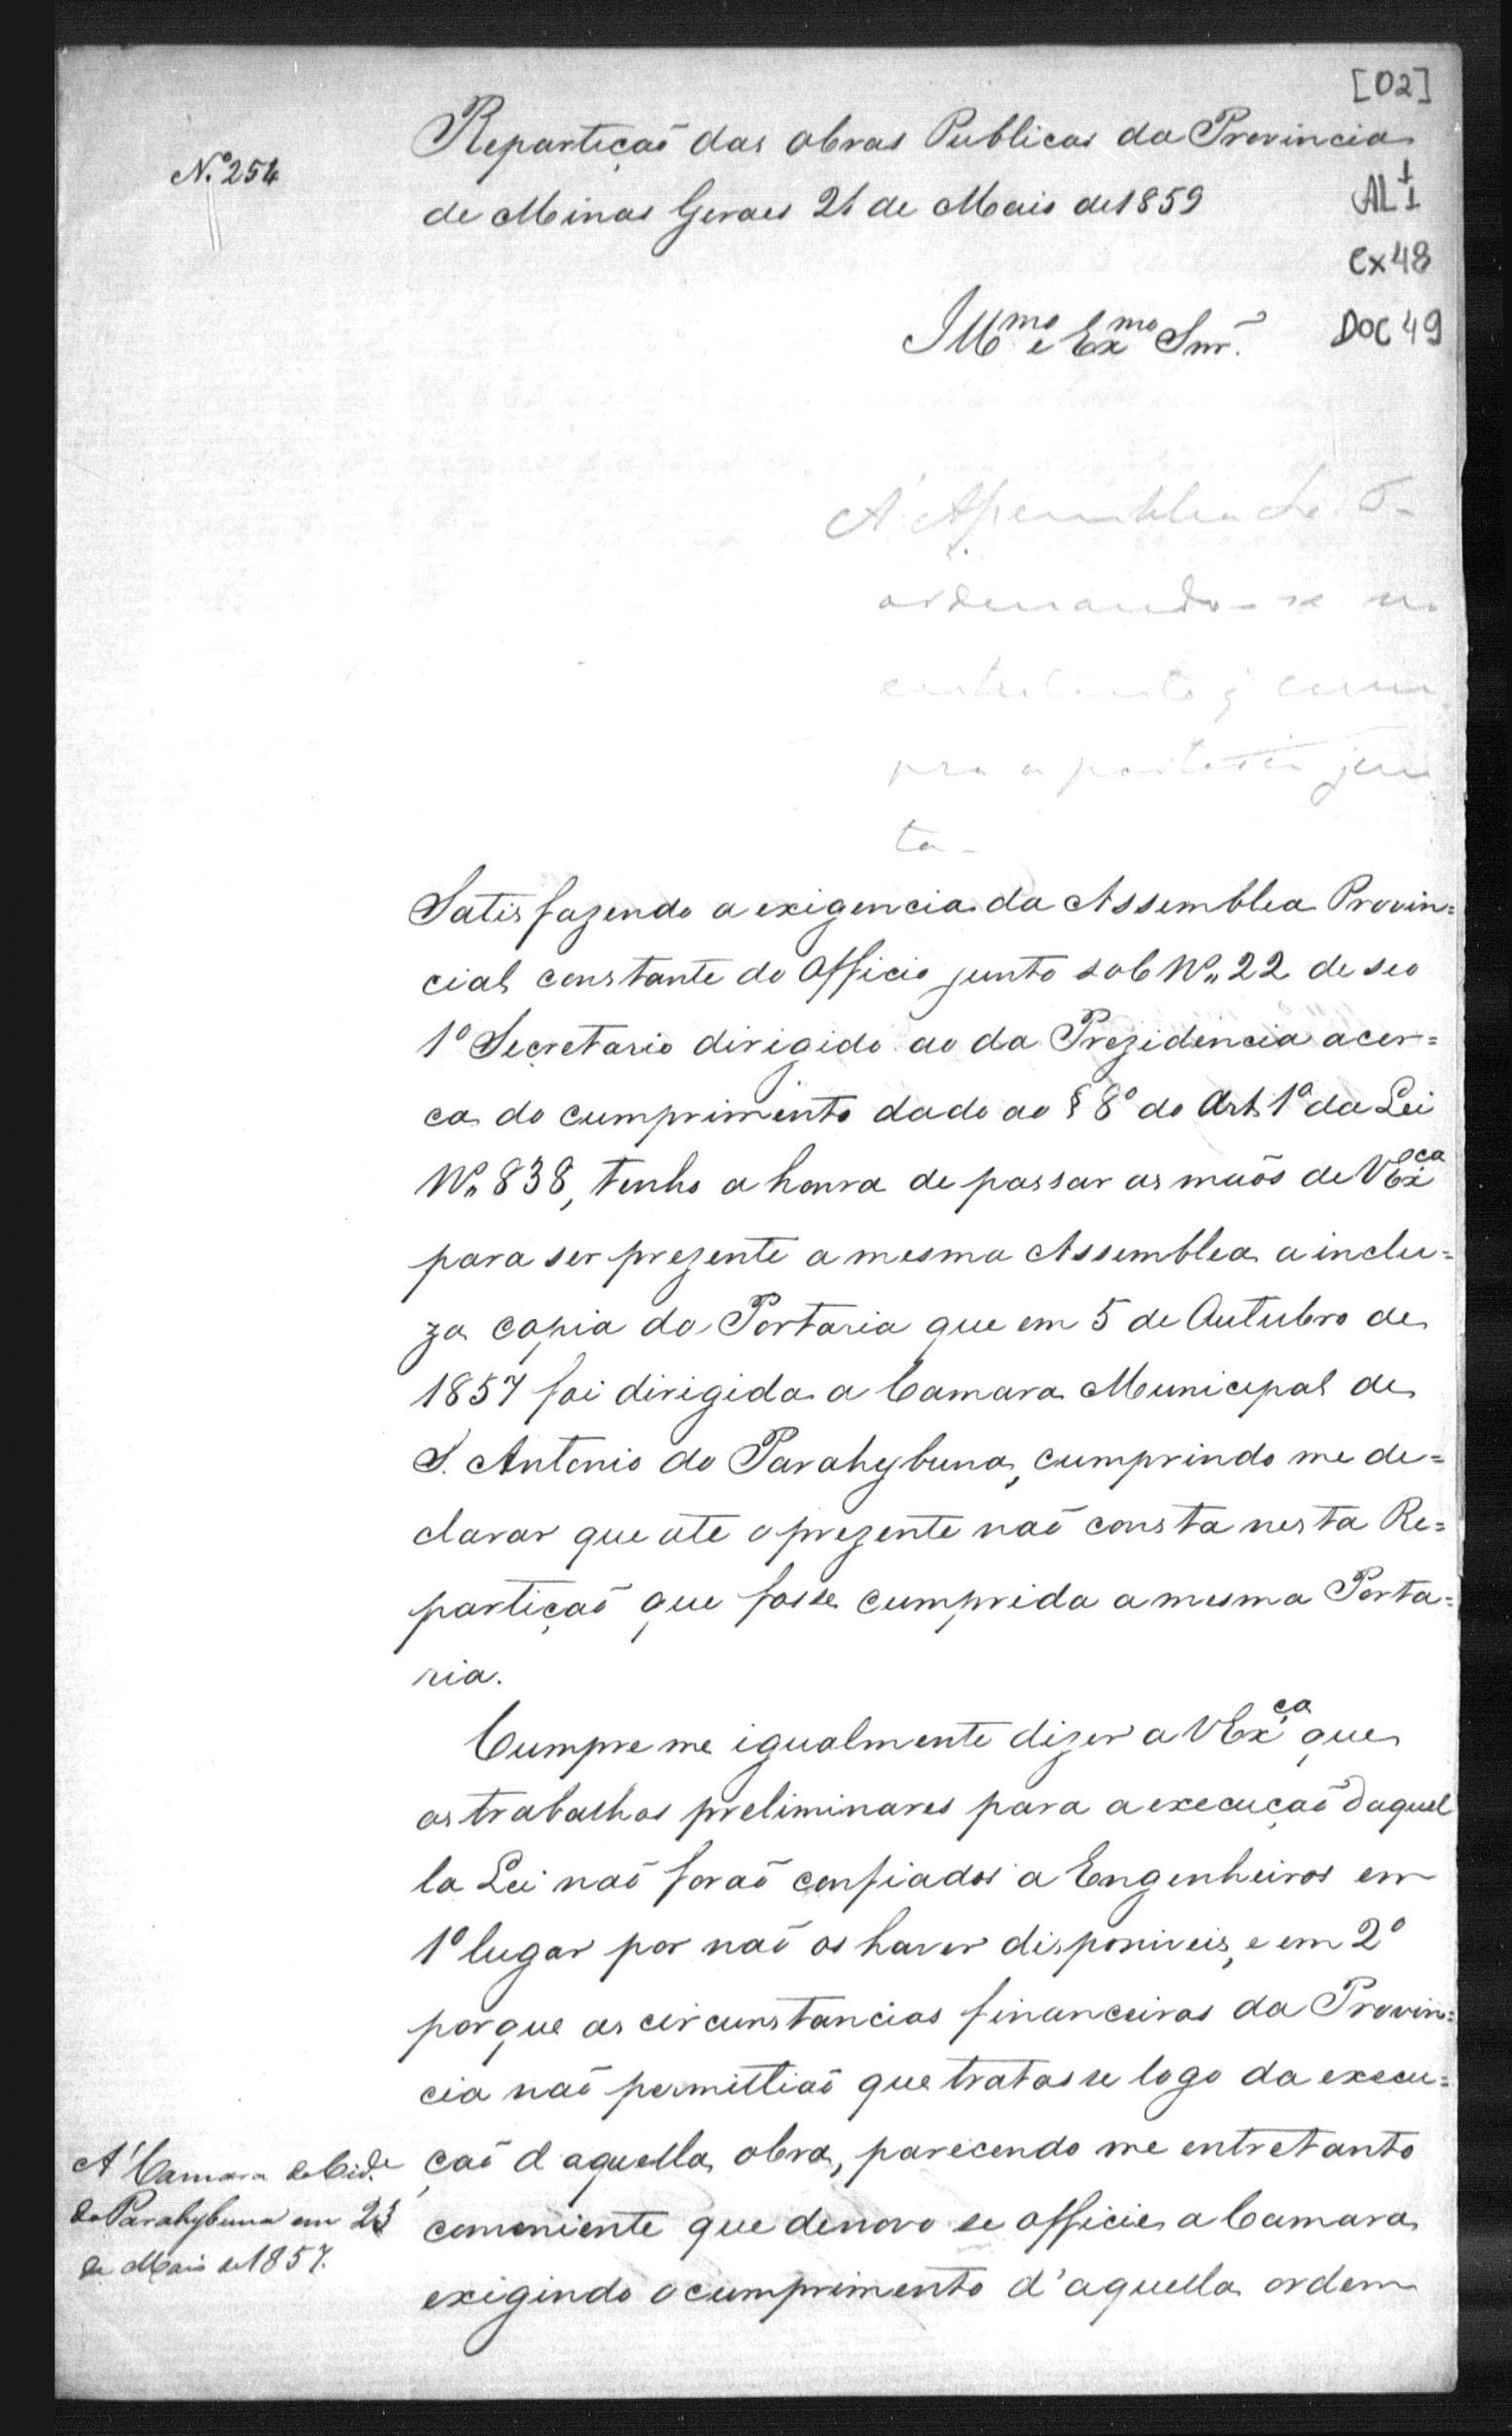 [02]
Nº 254
Repartiçaõ das obras Publicas da Provincia
de Minas Geraes 21 de Maio de 1859
AL I
Cx 48
DOC 49
Illmo e Exmo Snr.
A' Assemblea
ordenando-se no
entretanto q cum
pra a portaria jun
ta-
Satisfazendo a exigencia da Assemblea Provin=
cial constante do Officio junto sob Nº 22 de seo
1º Secretario dirigido ao da Prezidencia acer=
ca do cumprimento dado ao § 8º do Art. 1º da Lei
Nº 838, tenho a honra de passar as maõs de VExca
para ser prezente a mesma Assemblea a inclu=
za copia da Portaria que em 5 de Outubro de
1857 foi dirigida a Camara Municipal de
S. Antonio do Parahybuna, cumprindo me de=
clarar que ate o prezente naõ consta nesta Re=
partiçaõ que fosse cumprida a mesma Porta=
ria.
Cumpre me igualmente dizer a VExca que
os trabalhos preliminares para a execuçaõ daquel
la Lei naõ foraõ confiados a Engenheiros em
1º lugar por naõ os haver disponiveis, e em 2º
porque as circunstancias financeiras da Provin=
cia naõ permittiaõ que tratasse logo da execu=
çaõ d aquella obra, parecendo me entretanto
conveniente que denovo se officie a Camara
exigindo o cumprimento d'aquella ordem
A' Camara da Cide
do Parahybuna em 23
de Maio de 1857.